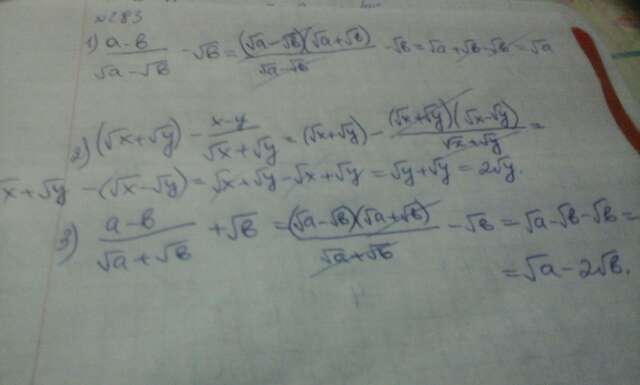 №283
1) (a-b)/(√a-√b) - √b = ((√a-√b)(√a+√b))/(√a-√b) - √b = √a+√b-√b = √a
2) (√x+√y) - (x-y)/(√x+√y) = (√x+√y) - ((√x+√y)(√x-√y))/(√x+√y) =
√x+√y - (√x-√y) = √x+√y-√x+√y = √y+√y = 2√y.
3) (a-b)/(√a+√b) + √b = ((√a-√b)(√a+√b))/(√a+√b) - √b = √a-√b-√b =
= √a-2√b.